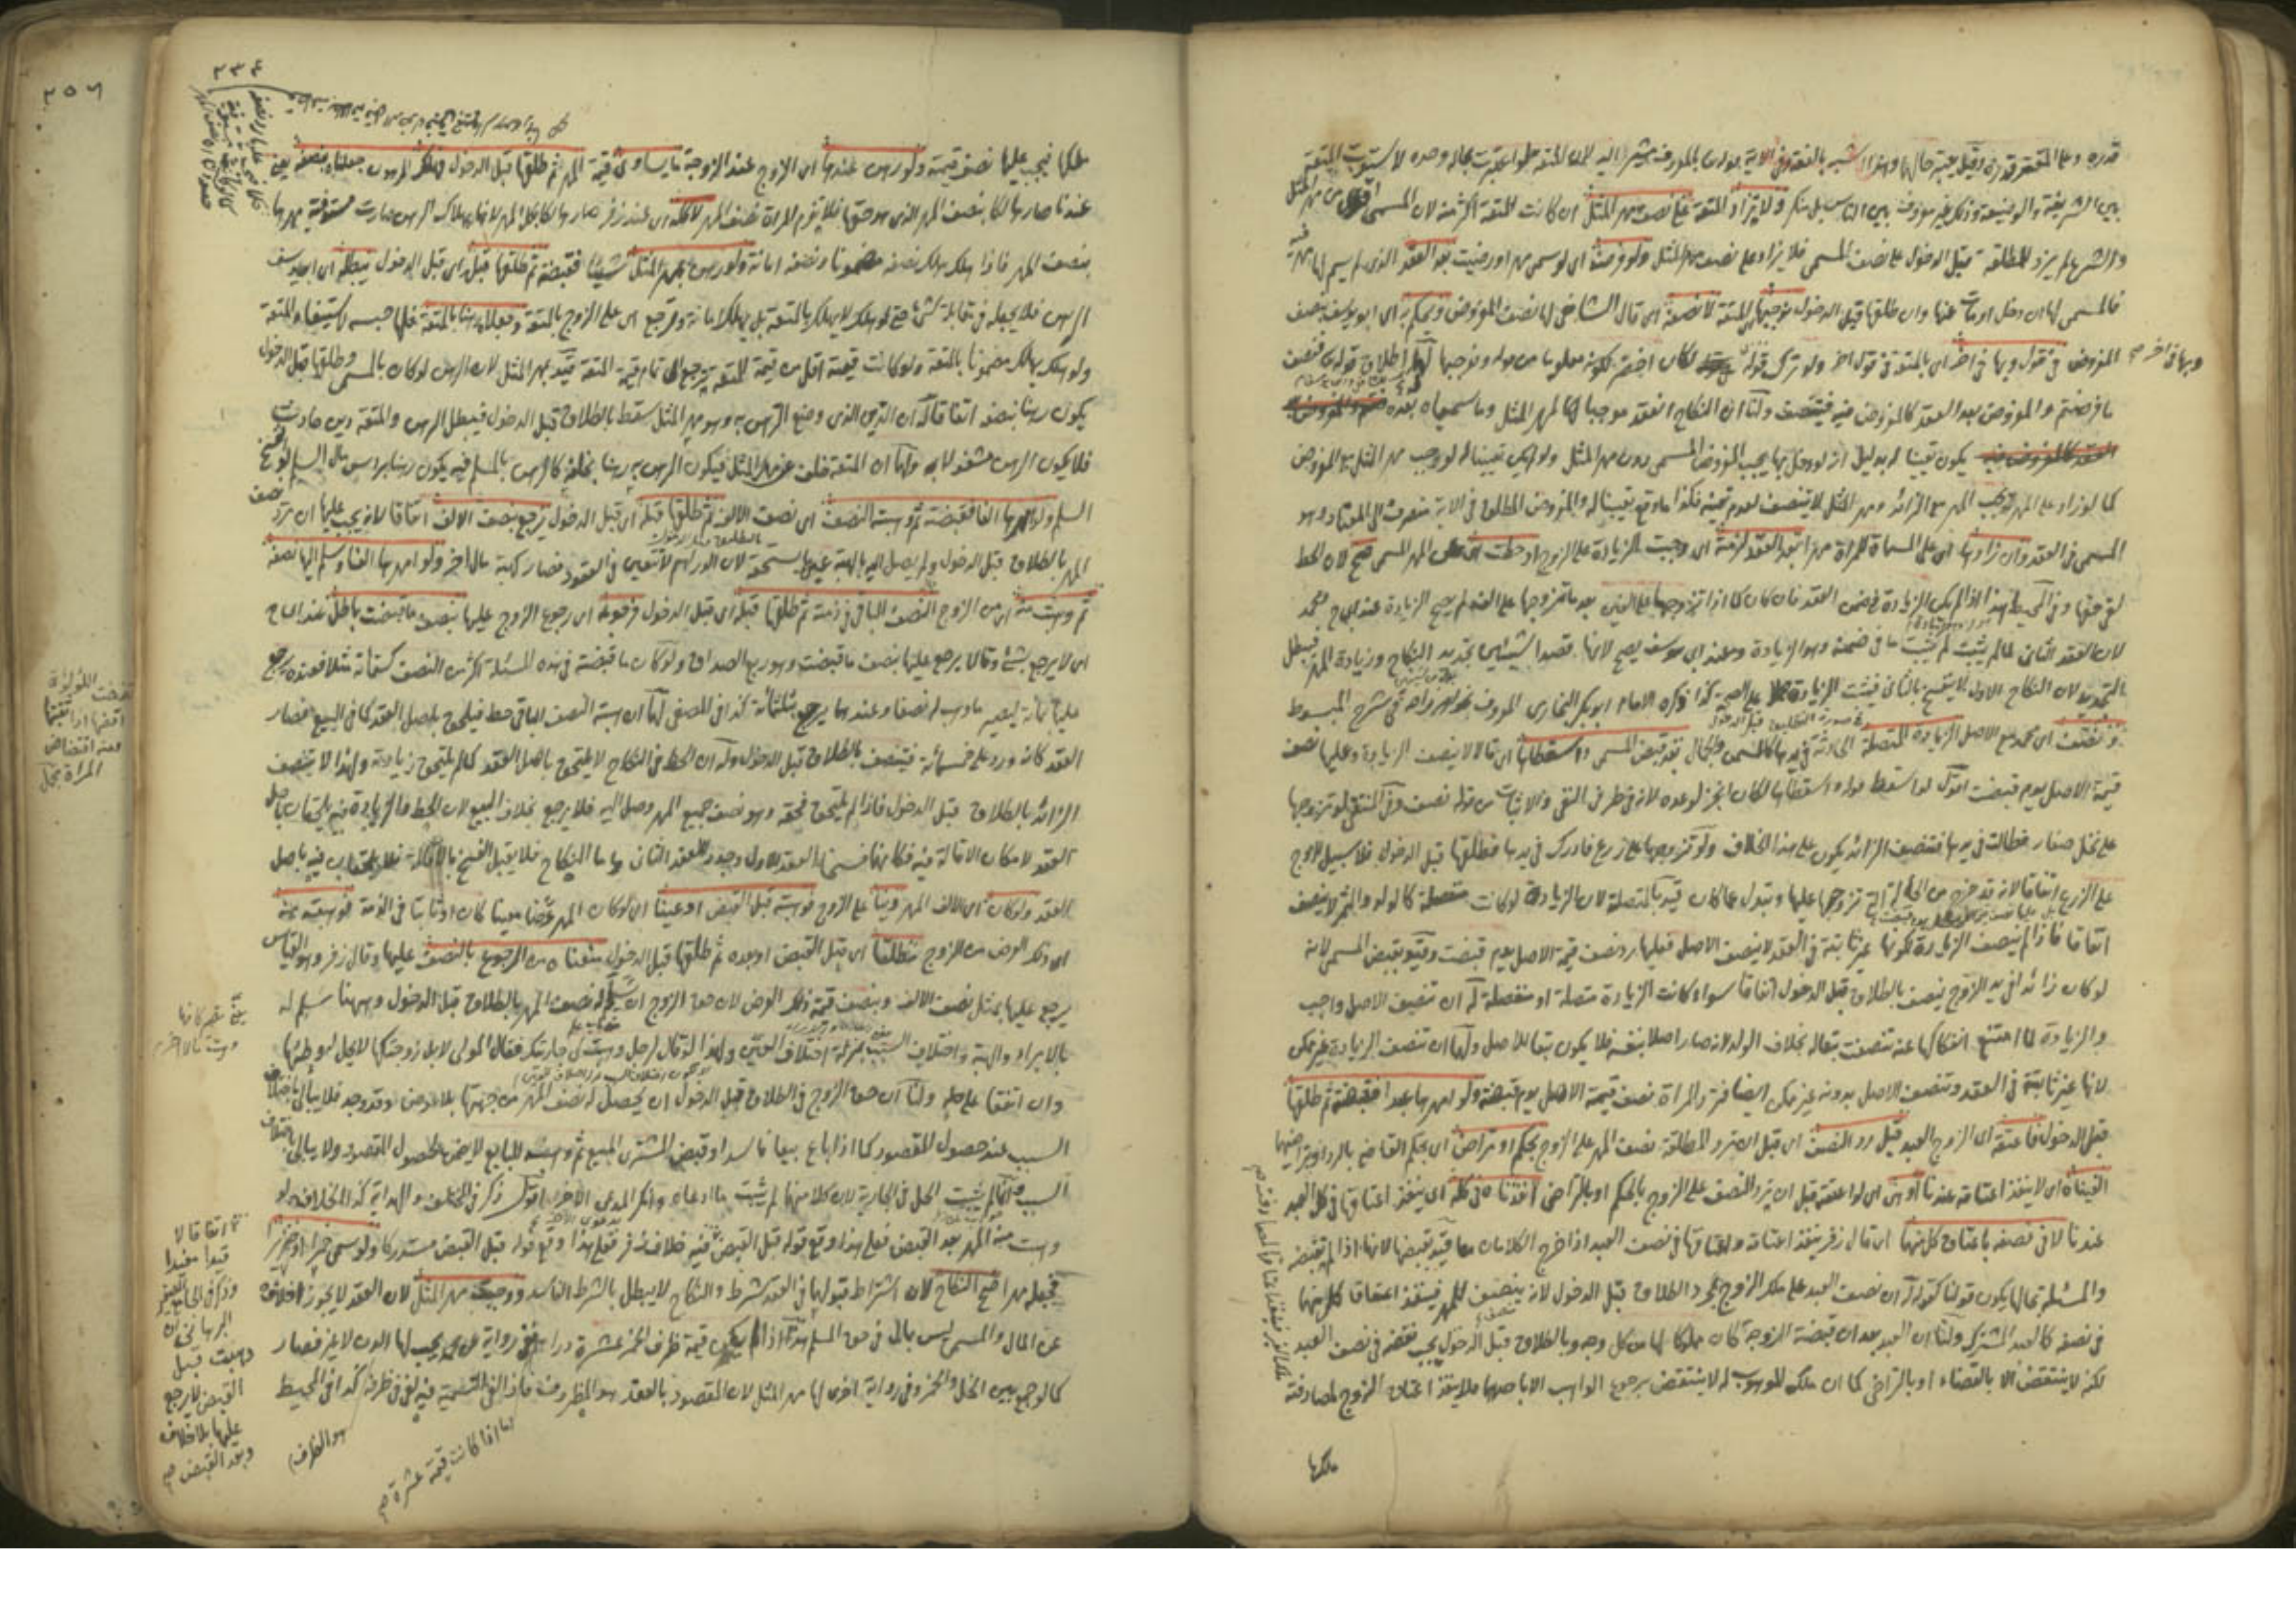 قدره وعلى المقتر قدره وقيل يعتبر حالها وهذا اشبه بالفقه وفي الاية بالمعروف يشير اليه لان المتعة لو اعتبرت بحاله وحده لاستوت المتعة
بين الشريفة والوضيعة وذلك غير معروف بين الناس بل منكر ولا يزاد المتعة على نصف مهر المثل ان كانت المتعة اكثر منه لان المسمى اقوى من مهر المثل
والشرع لم يزد للمطلقة قبل الدخول على نصف المسمى فلا يزاد على نصف مهر المثل ولو فرضت اي لو سمى مهرا ورضيت بعد العقد الذي لم يسم لها مهر فيه
فالمسمى لها ان دخل او مات عنها وان طلقها قبل الدخول نوجبها المتعة لا نصفه اي قال الشافعي لها نصف المفروض ويحكم به اي ابو يوسف بنصف
المفروض في قول وبها في اخر اي بالمتعة في قول اخر ولو ترك قوله لكان اخصر لكونه معلوما من قوله ونوجبها لهما اطلاق قوله فنصف
وبها في اخر صح
ما فرضتم والمفروض بعد العقد كالمفروض فيه فيتنصف ولنا ان النكاح انعقد موجبا لها مهر المثل وما سمياه بعده
يكون تعيينا له بدليل انه لو دخل بها يجب المفروض المسمى دون مهر المثل ولو لم يكن تعيينا له لوجب مهر المثل مع المفروض
كما لو زاد على المهر يجب المهر مع الزائد ومهر المثل لا يتنصف لعدم تعينه فكذا ما وقع تعيينا له والمفروض المطلق في الاية منصرف الى المعتاد وهو
المسمى في العقد وان زادها اي على المسماة للمراة مهرا بعد العقد لزمته اي وجبت الزيادة على الزوج او حطت اي المهر المسمى صح لان الحط
لاقى حقها وفي المحيط هذا اذا لم يكن الزيادة في ضمن العقد فان كان كما اذا تزوجها على الفين بعد ما تزوجها على الف لم يصح الزيادة عند محمد
لان العقد الثاني لما لم يثبت لم يثبت ما في ضمنه وهو الزيادة وعند ابي يوسف يصح لانها قصدا شيئين تجديد النكاح وزيادة المهر فبطل
التجديد لان النكاح الاول لا ينفسخ بالثاني فيثبت الزيادة على الصحة كذا ذكره الامام ابو بكر البخاري المعروف بخواهر زاده في شرح المبسوط
وتنصف اي محمد مع الاصل الزيادة المتصلة الحادثة في يدها كالسمن والجمال بعد قبض المسمى واسقطاها اي قالا لا ينصف الزيادة وعليها نصف
قيمة الاصل يوم قبضت اقول لو اسقط قوله واسقطاها لكان اوجز لوعده لانه في طرفي النفي والاثبات من قوله نصف وفي المنتقى لو تزوجها
على نخل صغار فطالت في يدها فتنصف الزائد يكون على هذا الخلاف ولو تزوجها على زرع فادرك في يدها فطلقها قبل الدخول فلا سبيل للزوج
على الزرع اتفاقا لانه قد خرج من الحالة التي تزوجها عليها وتبدل عما كان قيد بالمتصلة لان الزيادة لو كانت منفصلة كالولد والثمر لا ينصف
اتفاقا فاذا لم ينصف الزيادة لكونها غير ثابتة في العقد لا ينصف الاصل فعليها رد نصف قيمة الاصل يوم قبضت وقيد بقبض المسمى لانه
لو كان زائدا في يد الزوج ينصف بالطلاق قبل الدخول اتفاقا سواء كانت الزيادة متصلة او منفصلة له ان تنصيف الاصل واجب
والزيادة لما امتنع انفكاكها عنه تنصفت تبعا له بخلاف الولد لانه صار اصلا بنفسه فلا يكون تبعا للاصل ولهما ان تنصف الزيادة غير ممكن
لانها غير ثابتة في العقد وتنصف الاصل بدونه غير ممكن ايضا فترد المراة نصف قيمة الاصل يوم قبضته ولو امهرها عبدا فقبضته ثم طلقها
قبل الدخول فاعتقه اي الزوج العبد قبل رد النصف اي قبل ان ترد المطلقة نصف المهر على الزوج بحكم او تراض اي بحكم القاضي بالرد او بتراضيهما
الغيناه اي لا ينفذ اعتاقه عندنا او هي اي لو اعتقه قبل ان ترد النصف على الزوج بالحكم او بالتراضي انفذناه في كله اي ينفذ اعتاقها في كل العبد
عندنا لا في نصفه باعتاق كل منهما اي قال زفر ينفذ اعتاقه واعتاقها في نصف العبد اذا خرج الكلامان معا قيد بقبضها لانها اذا لم تقبضه
والمسئلة بحالها يكون قولنا كقوله له ان نصف العبد على ملك الزوج بمجرد الطلاق قبل الدخول لانه ينصف المهر فينفذ اعتاق كل منهما
في نصفه كالعبد المشترك ولنا ان العبد بعد ان قبضته الزوجة كان ملكا لها من كل وجه وبالطلاق قبل الدخول يجب نقضه في نصف العبد
لكنه لا ينتقض الا بالقضاء او بالتراضي كما ان ملك الموهوب له لا ينتقض برجوع الواهب الا باحدهما فلا ينفذ اعتاق الزوج لمصادفته
ملكها
٢٣٤
٢٥٦
ملكها فيجب عليها نصف قيمته ولو رهن عندها اي الزوج عند الزوجة ما يساوي قيمة المهر ثم طلقها قبل الدخول وهلك المرهون جعلناه بنصفه يعني
عندنا صار هالكا بنصف المهر الذي هو حقها فلا يغرم المراة نصف المهر لا كله اي عند زفر صار هالكا بكل المهر لانها بهلاك الرهن صارت مستوفية مهرها
بنصف المهر فاذا هلك يهلك نصفه مضمونا ونصفه امانة ولو رهن بمهر المثل شيئا فقبضته ثم طلقها قبله اي قبل الدخول يبطله اي ابو يوسف
الرهن فلا يجعله في مقابلة شيء حتى لو هلك لا يهلك بالمتعة بل يهلك امانة وترجع اي على الزوج بالمتعة وجعلاه رهنا بالمتعة فلها حبسه لاستيفاء المتعة
ولو هلك يهلك مضمونا بالمتعة ولو كانت قيمته اقل من قيمة المتعة يرجع الى تمام قيمة المتعة قيد بمهر المثل لان الرهن لو كان بالمسمى وطلقها قبل الدخول
يكون رهنا بنصفه اتفاقا له ان الدين الذي وضع الرهن به وهو مهر المثل سقط بالطلاق قبل الدخول فيبطل الرهن والمتعة دين حادث
فلا يكون الرهن مشغولا به ولهما ان المتعة خلف عن مهر المثل فيكون الرهن به رهنا بخلفه كالرهن بالمسلم فيه يكون رهنا براس مال السلم لو فسخ
السلم ولو امهرها الفا فقبضته ثم وهبته النصف اي نصف الالف ثم طلقها قبله اي قبل الدخول يرجع بنصف الالف اتفاقا لانه يجب عليها ان ترد نصف
المهر بالطلاق قبل الدخول ولم يصل اليه بالهبة عين ما يستحقه لان الدراهم لا تتعين في العقود فصار كهبة مال اخر ولو امهرها الفا وسلم اليها نصفه
ثم وهبت منه اي من الزوج النصف الباقي في ذمته ثم طلقها قبله اي قبل الدخول فرجوعه اي رجوع الزوج عليها بنصف ما قبضت باطل عند الامام
اي لا يرجع بشئ وقالا يرجع عليها بنصف ما قبضت وهو ربع الصداق ولو كان ما قبضته في هذه المسئلة اكثر من النصف كستمائة مثلا فعنده يرجع
عليها بمائة ليصير ما وهب له نصفا وعندهما يرجع بثلثمائة كذا في المصفى لهما ان هبة النصف الباقي حط فيلحق باصل العقد كما في البيع فصار
العقد كانه ورد على خمسمائة فيتنصف بالطلاق قبل الدخول وله ان الحط في النكاح لا يلتحق باصل العقد كما لم يلتحق زيادته ولهذا لا يتنصف
الزائد بالطلاق قبل الدخول فاذا لم يلتحق فحقه وهو نصف جميع المهر وصل اليه فلا يرجع بخلاف البيع لان الحط والزيادة فيه يلتحقان باصل
العقد لامكان الاقالة فيه فكانهما فسخا العقد الاول وجددا العقد الثاني واما النكاح فلا يقبل الفسخ بالاقالة فلا يلتحقان فيه باصل
العقد ولو كان اي الالف المهر دينا على الزوج فوهبته قبل القبض او عينا اي لو كان المهر عرضا معينا كان او ثابتا في الذمة فوهبته منه
اي ذلك العرض من الزوج مطلقا اي قبل القبض او بعده ثم طلقها قبل الدخول منعناه من الرجوع بالنصف عليها وقال زفر وهو القياس
يرجع عليها بمثل نصف الالف وبنصف قيمة ذلك العرض لان حق الزوج ان يسلم له نصف المهر بالطلاق قبل الدخول وههنا سلم له
بالابراء والهبة واختلاف السبب بمنزلة اختلاف العين ولهذا لو قال لرجل وهبت لي جاريتك فقال المولى لا بل زوجتكها لا يحل له وطئها
وان اتفقا على حله ولنا ان حق الزوج في الطلاق قبل الدخول ان يحصل له نصف المهر من جهتها بلا عوض وقد وجد فلا يبالى باختلاف
السبب عند حصول المقصود كما اذا باع بيعا فاسدا وقبض المشتري المبيع ثم وهبه للبائع لا يضمن لحصول المقصود ولا يبالى باختلاف
السبب وانما لم يثبت الحل في الجارية لان كلا منهما لم يثبت ما ادعاه وانكر المدعي الاخر اقول ذكر في المختلف والهداية كذا الخلاف لو
وهبت منه المهر بعد القبض فعلى هذا وقع قوله قبل القبض فيه خلاف زفر فعلى هذا وقع قوله قبل القبض مستدركا ولو سمى خمرا او خنزيرا
فجعله مهرا صح النكاح لان اشتراط قبولها في العقد شرط والنكاح لا يبطل بالشرط الفاسد ووجب مهر المثل لان العقد لا يجوز اخلاؤه
عن المال والمسمى ليس بمال في حق المسلم هذا اذا لم يكن قيمة ظرف الخمر عشرة دراهم ففي رواية عن محمد يجب لها الدن لا غير فصار
كالو جمع بين الخل والخمر وفي رواية اخرى لها مهر المثل لان المقصود بالعقد هو المظروف فاذا لغى التسمية فيه لغى في ظرفه كذا في المحيط
هو الظرف
اما اذا كانت قيمته عشرة صح
اتفاقا لا
قيدا مفيدا
وذكر في الجامع الصغير
البرهاني ان
وهبت قبل
القبض لا يرجع
عليها بلا خلاف
وبعد القبض صح
افتضت اللؤلؤة
المراة بحل